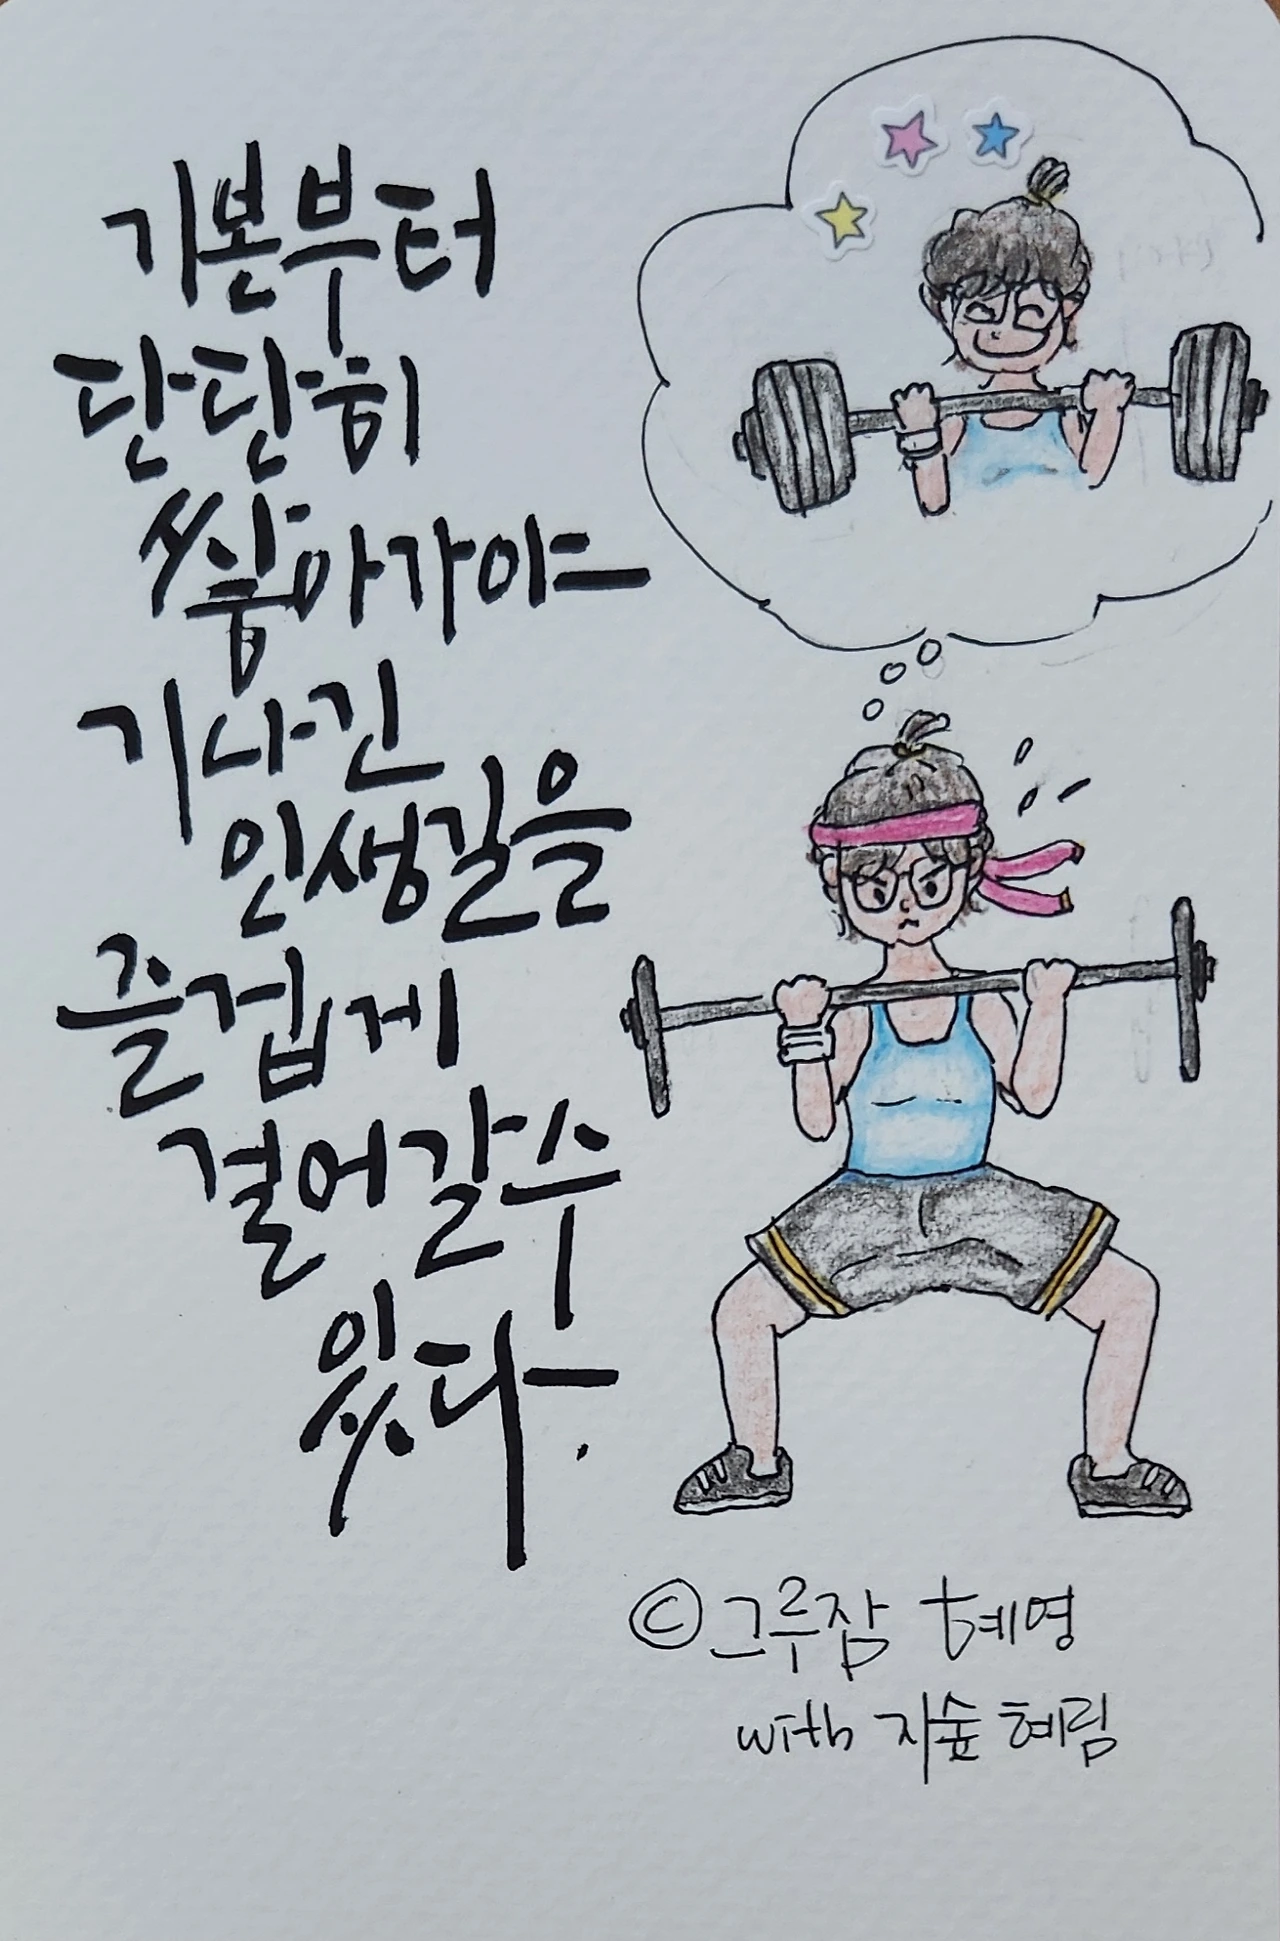 기본부터
단단히
쌓아가야
기나긴
인생길을
즐겁게
걸어갈수
있다.
©그루잠 혜영
with 지숲 혜림